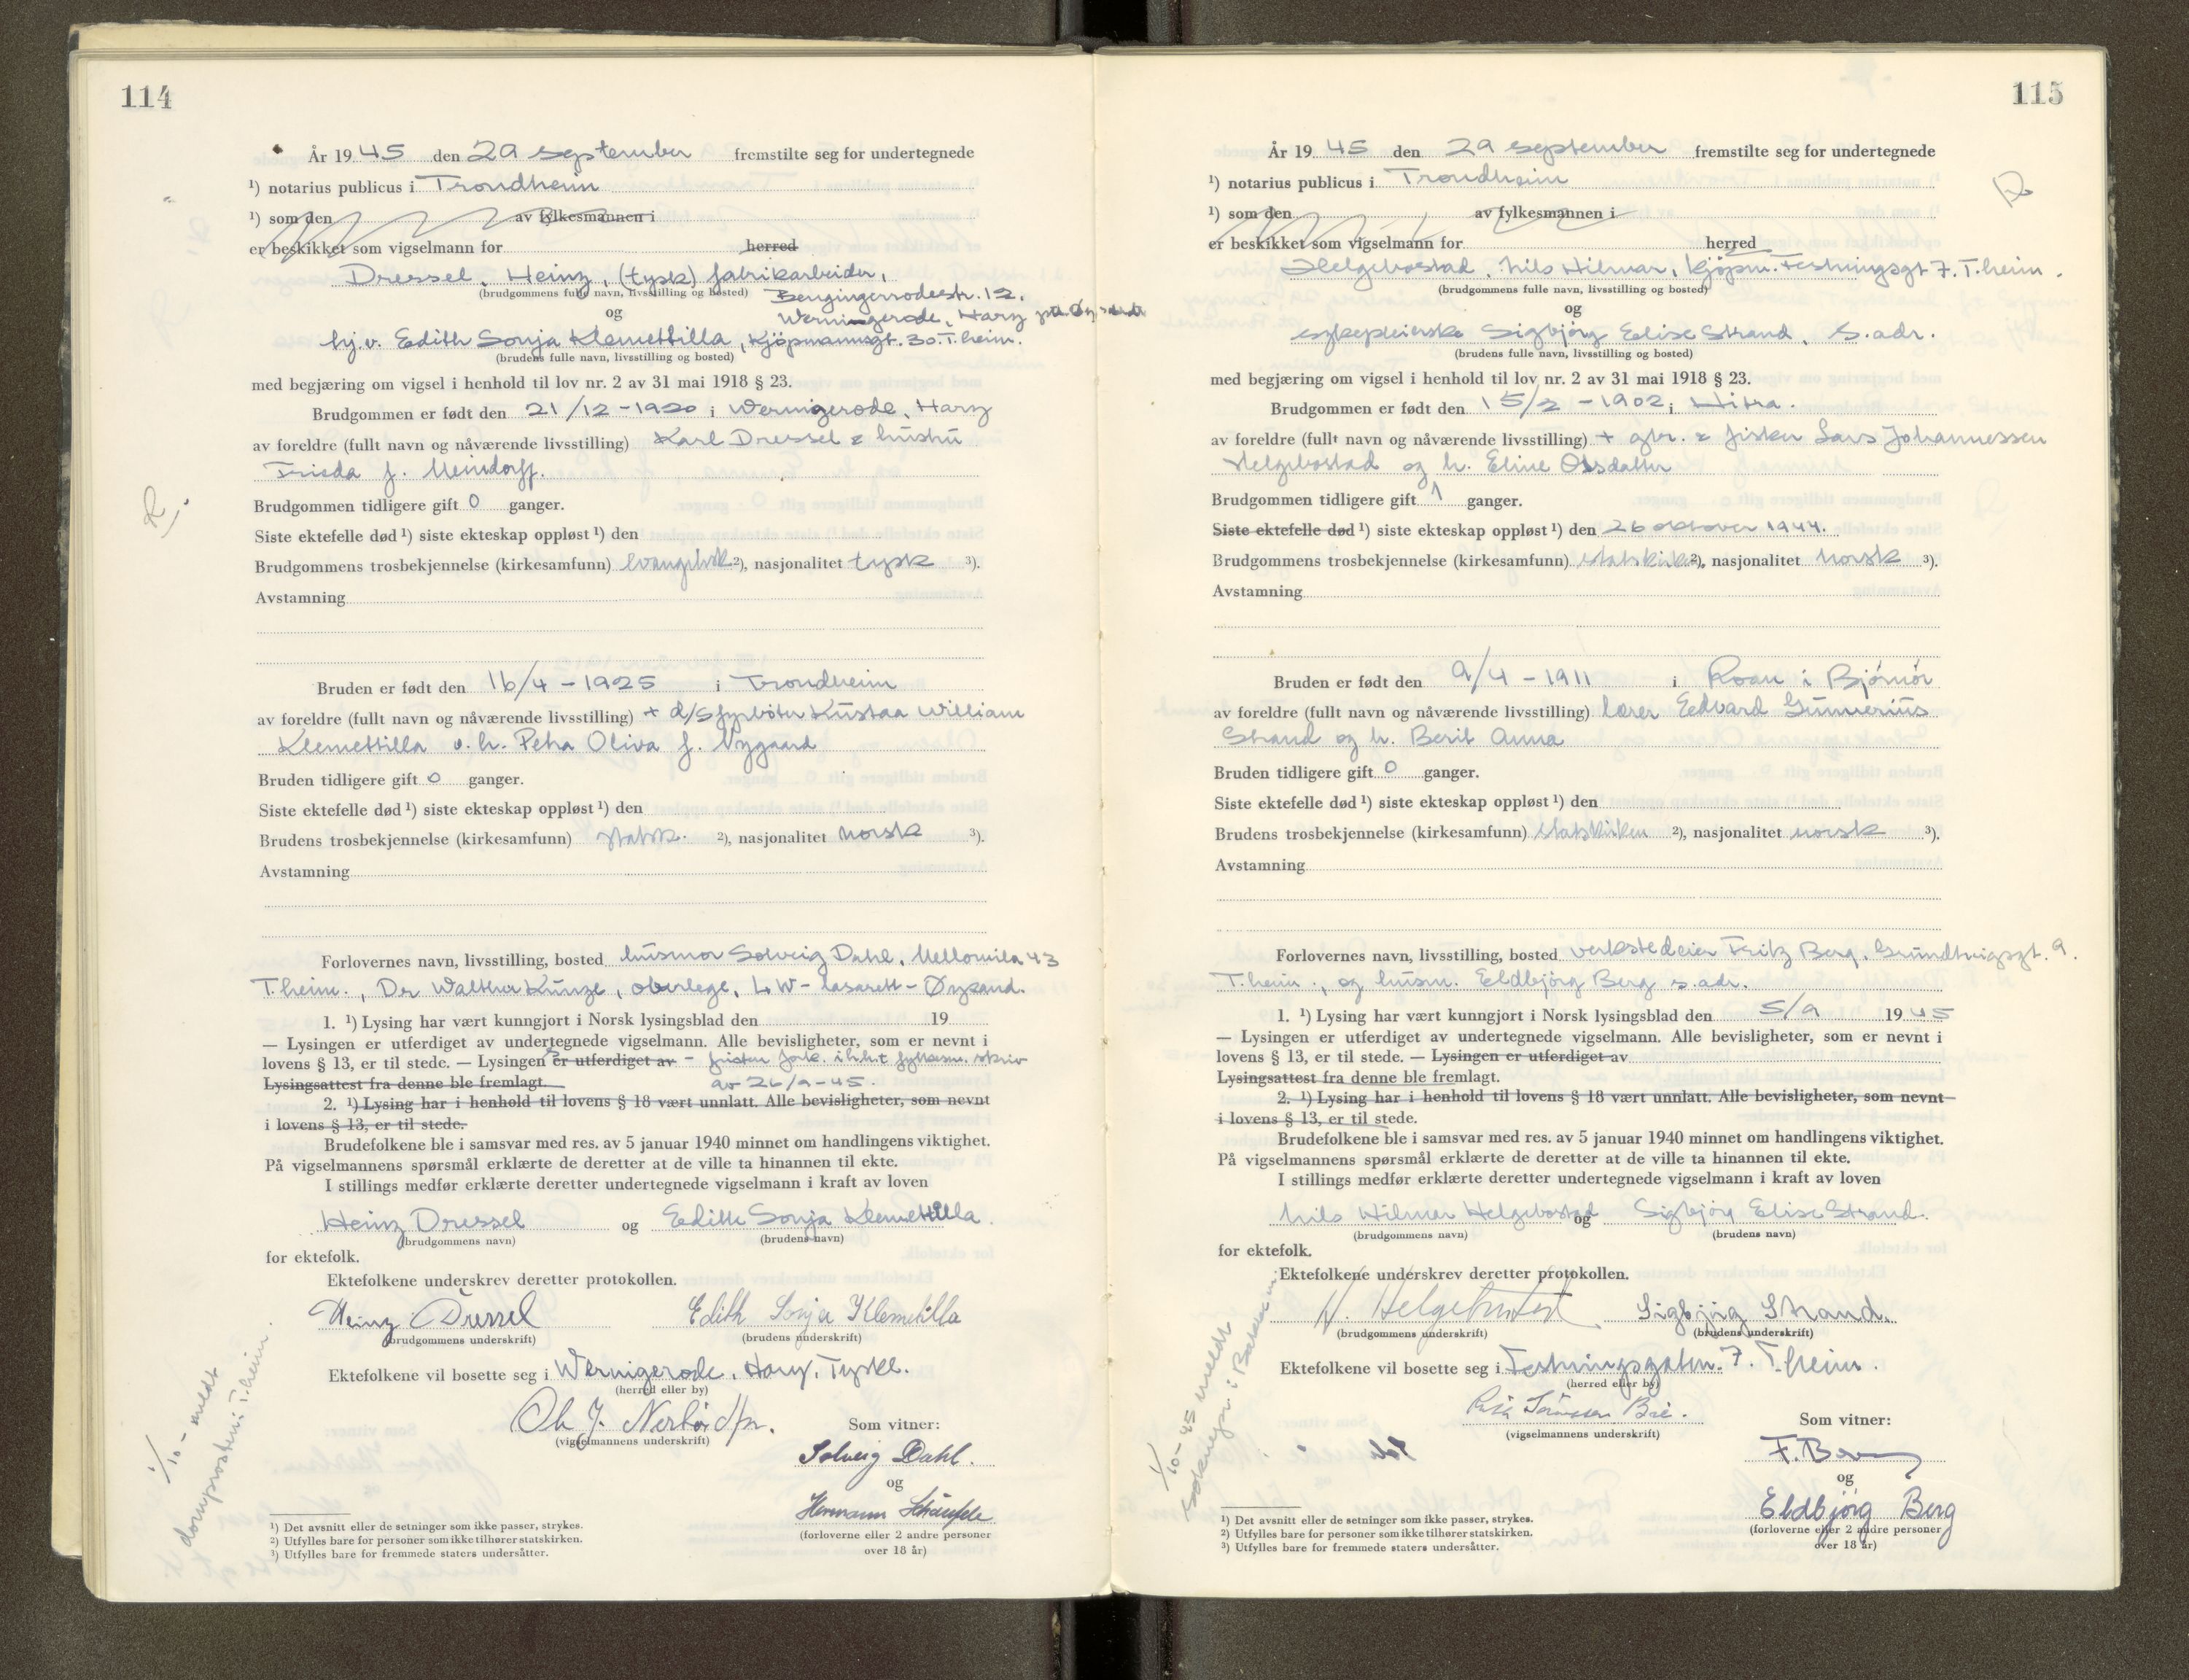 114
År 1945 den 29 september fremstilte seg for undertegnede
¹) notarius publicus i Trondheim
¹) som den av fylkesmannen i
er beskikket som vigselmann for herred
Dressel, Heinz, (tysk) fabrikarbeider,
(brudgommens fulle navn, livsstilling og bosted) Bengingerrodestr. 12.
og Wernigerode, Harz
hj.v. Edith Sonja Klemettilla, Kjöpmannsgt. 30. T.heim.
(brudens fulle navn, livsstilling og bosted)
med begjæring om vigsel i henhold til lov nr. 2 av 31 mai 1918 § 23.
Brudgommen er født den 21/12 - 1920 i Wernigerode, Harz
av foreldre (fullt navn og nåværende livsstilling) Karl Dressel & hustru
Frieda f. Meindorff.
Brudgommen tidligere gift 0 ganger.
R.
Siste ektefelle død ¹) siste ekteskap oppløst ¹) den
Brudgommens trosbekjennelse (kirkesamfunn) evangelisk ²), nasjonalitet tysk ³).
Avstamning
Bruden er født den 16/4 - 1925 i Trondheim
av foreldre (fullt navn og nåværende livsstilling) + d/s fyrböter Kustaa William
Klemettilla o. h. Petra Oliva f. Nygaard
Bruden tidligere gift 0 ganger.
Siste ektefelle død ¹) siste ekteskap oppløst ¹) den
Brudens trosbekjennelse (kirkesamfunn) statsk. ²), nasjonalitet norsk ³).
Avstamning
Forlovernes navn, livsstilling, bosted husmor Solveig Dahl, Mellomila 43
T.heim., Dr Walther Kunze, oberlege, LW-lasarett - Øysand.
1. ¹) Lysing har vært kunngjort i Norsk lysingsblad den 19
— Lysingen er utferdiget av undertegnede vigselmann. Alle bevisligheter, som er nevnt i
lovens § 13, er til stede. — Lysingen er utferdiget av - fristen fork. i h.h.t fylkesm. skriv
Lysingsattest fra denne ble fremlagt. av 26/9-45.
2. ¹) Lysing har i henhold til lovens § 18 vært unnlatt. Alle bevisligheter, som nevnt
i lovens § 13, er til stede.
Brudefolkene ble i samsvar med res. av 5 januar 1940 minnet om handlingens viktighet.
På vigselmannens spørsmål erklærte de deretter at de ville ta hinannen til ekte.
I stillings medfør erklærte deretter undertegnede vigselmann i kraft av loven
Heinz Dressel og Edith Sonja Klemettilla.
(brudgommens navn) (brudens navn)
for ektefolk.
Ektefolkene underskrev deretter protokollen.
Heinz Dressel Edith Sonja Klemetilla
(brudgommens underskrift) (brudens underskrift)
Ektefolkene vil bosette seg i Wernigerode, Harz, Tyskl.
(herred eller by)
(vigselmannens underskrift) Som vitner:
Solveig Dahl.
og
Hermann
(forloverne eller 2 andre personer
over 18 år)
1/10 - meldt
domprosten i T.heim.
¹) Det avsnitt eller de setninger som ikke passer, strykes.
²) Utfylles bare for personer som ikke tilhører statskirken.
³) Utfylles bare for fremmede staters undersåtter.
115
År 1945 den 29 september fremstilte seg for undertegnede
¹) notarius publicus i Trondheim
R
¹) som den av fylkesmannen i
er beskikket som vigselmann for herred
Helgebostad, Nils Hilmar, Kjöpm. Festningsgt 7. T.heim.
(brudgommens fulle navn, livsstilling og bosted)
og
sykepleierske Sigbjörg Elise Strand, s. adr.
(brudens fulle navn, livsstilling og bosted)
med begjæring om vigsel i henhold til lov nr. 2 av 31 mai 1918 § 23.
Brudgommen er født den 15/2 - 1902 i Hitra.
av foreldre (fullt navn og nåværende livsstilling) + gbr. & fisker Lars Johannessen
Helgebostad og h. Eline Olsdatter
Brudgommen tidligere gift 1 ganger.
Siste ektefelle død ¹) siste ekteskap oppløst ¹) den 26 oktober 1944.
Brudgommens trosbekjennelse (kirkesamfunn) statskirk ²), nasjonalitet norsk ³).
Avstamning
Bruden er født den 9/4 - 1911 i Roan i Bjørnör
av foreldre (fullt navn og nåværende livsstilling) lærer Edvard Gunnerius
Strand og h. Berit Anna
Bruden tidligere gift 0 ganger.
Siste ektefelle død ¹) siste ekteskap oppløst ¹) den
Brudens trosbekjennelse (kirkesamfunn) statskirken ²), nasjonalitet norsk ³).
Avstamning
Forlovernes navn, livsstilling, bosted verkstedeier Fritz Berg, Grundtvigsgt. 9.
T.heim., og husm. Eldbjörg Berg s. adr.
1. ¹) Lysing har vært kunngjort i Norsk lysingsblad den 5/9 1945
— Lysingen er utferdiget av undertegnede vigselmann. Alle bevisligheter, som er nevnt i
lovens § 13, er til stede. — Lysingen er utferdiget av
Lysingsattest fra denne ble fremlagt.
2. ¹) Lysing har i henhold til lovens § 18 vært unnlatt. Alle bevisligheter, som nevnt
i lovens § 13, er til stede.
Brudefolkene ble i samsvar med res. av 5 januar 1940 minnet om handlingens viktighet.
På vigselmannens spørsmål erklærte de deretter at de ville ta hinannen til ekte.
I stillings medfør erklærte deretter undertegnede vigselmann i kraft av loven
Nils Hilmar Helgebostad og Sigbjörg Elise Strand.
(brudgommens navn) (brudens navn)
for ektefolk.
Ektefolkene underskrev deretter protokollen.
N. Helgebostad Sigbjørg Strand.
(brudgommens underskrift) (brudens underskrift)
Ektefolkene vil bosette seg i Festningsgaten 7. T.heim.
(herred eller by)
(vigselmannens underskrift) Som vitner:
F. Berg
og
Eldbjørg Berg
(forloverne eller 2 andre personer
over 18 år)
1/10-45 meldt
¹) Det avsnitt eller de setninger som ikke passer, strykes.
²) Utfylles bare for personer som ikke tilhører statskirken.
³) Utfylles bare for fremmede staters undersåtter.